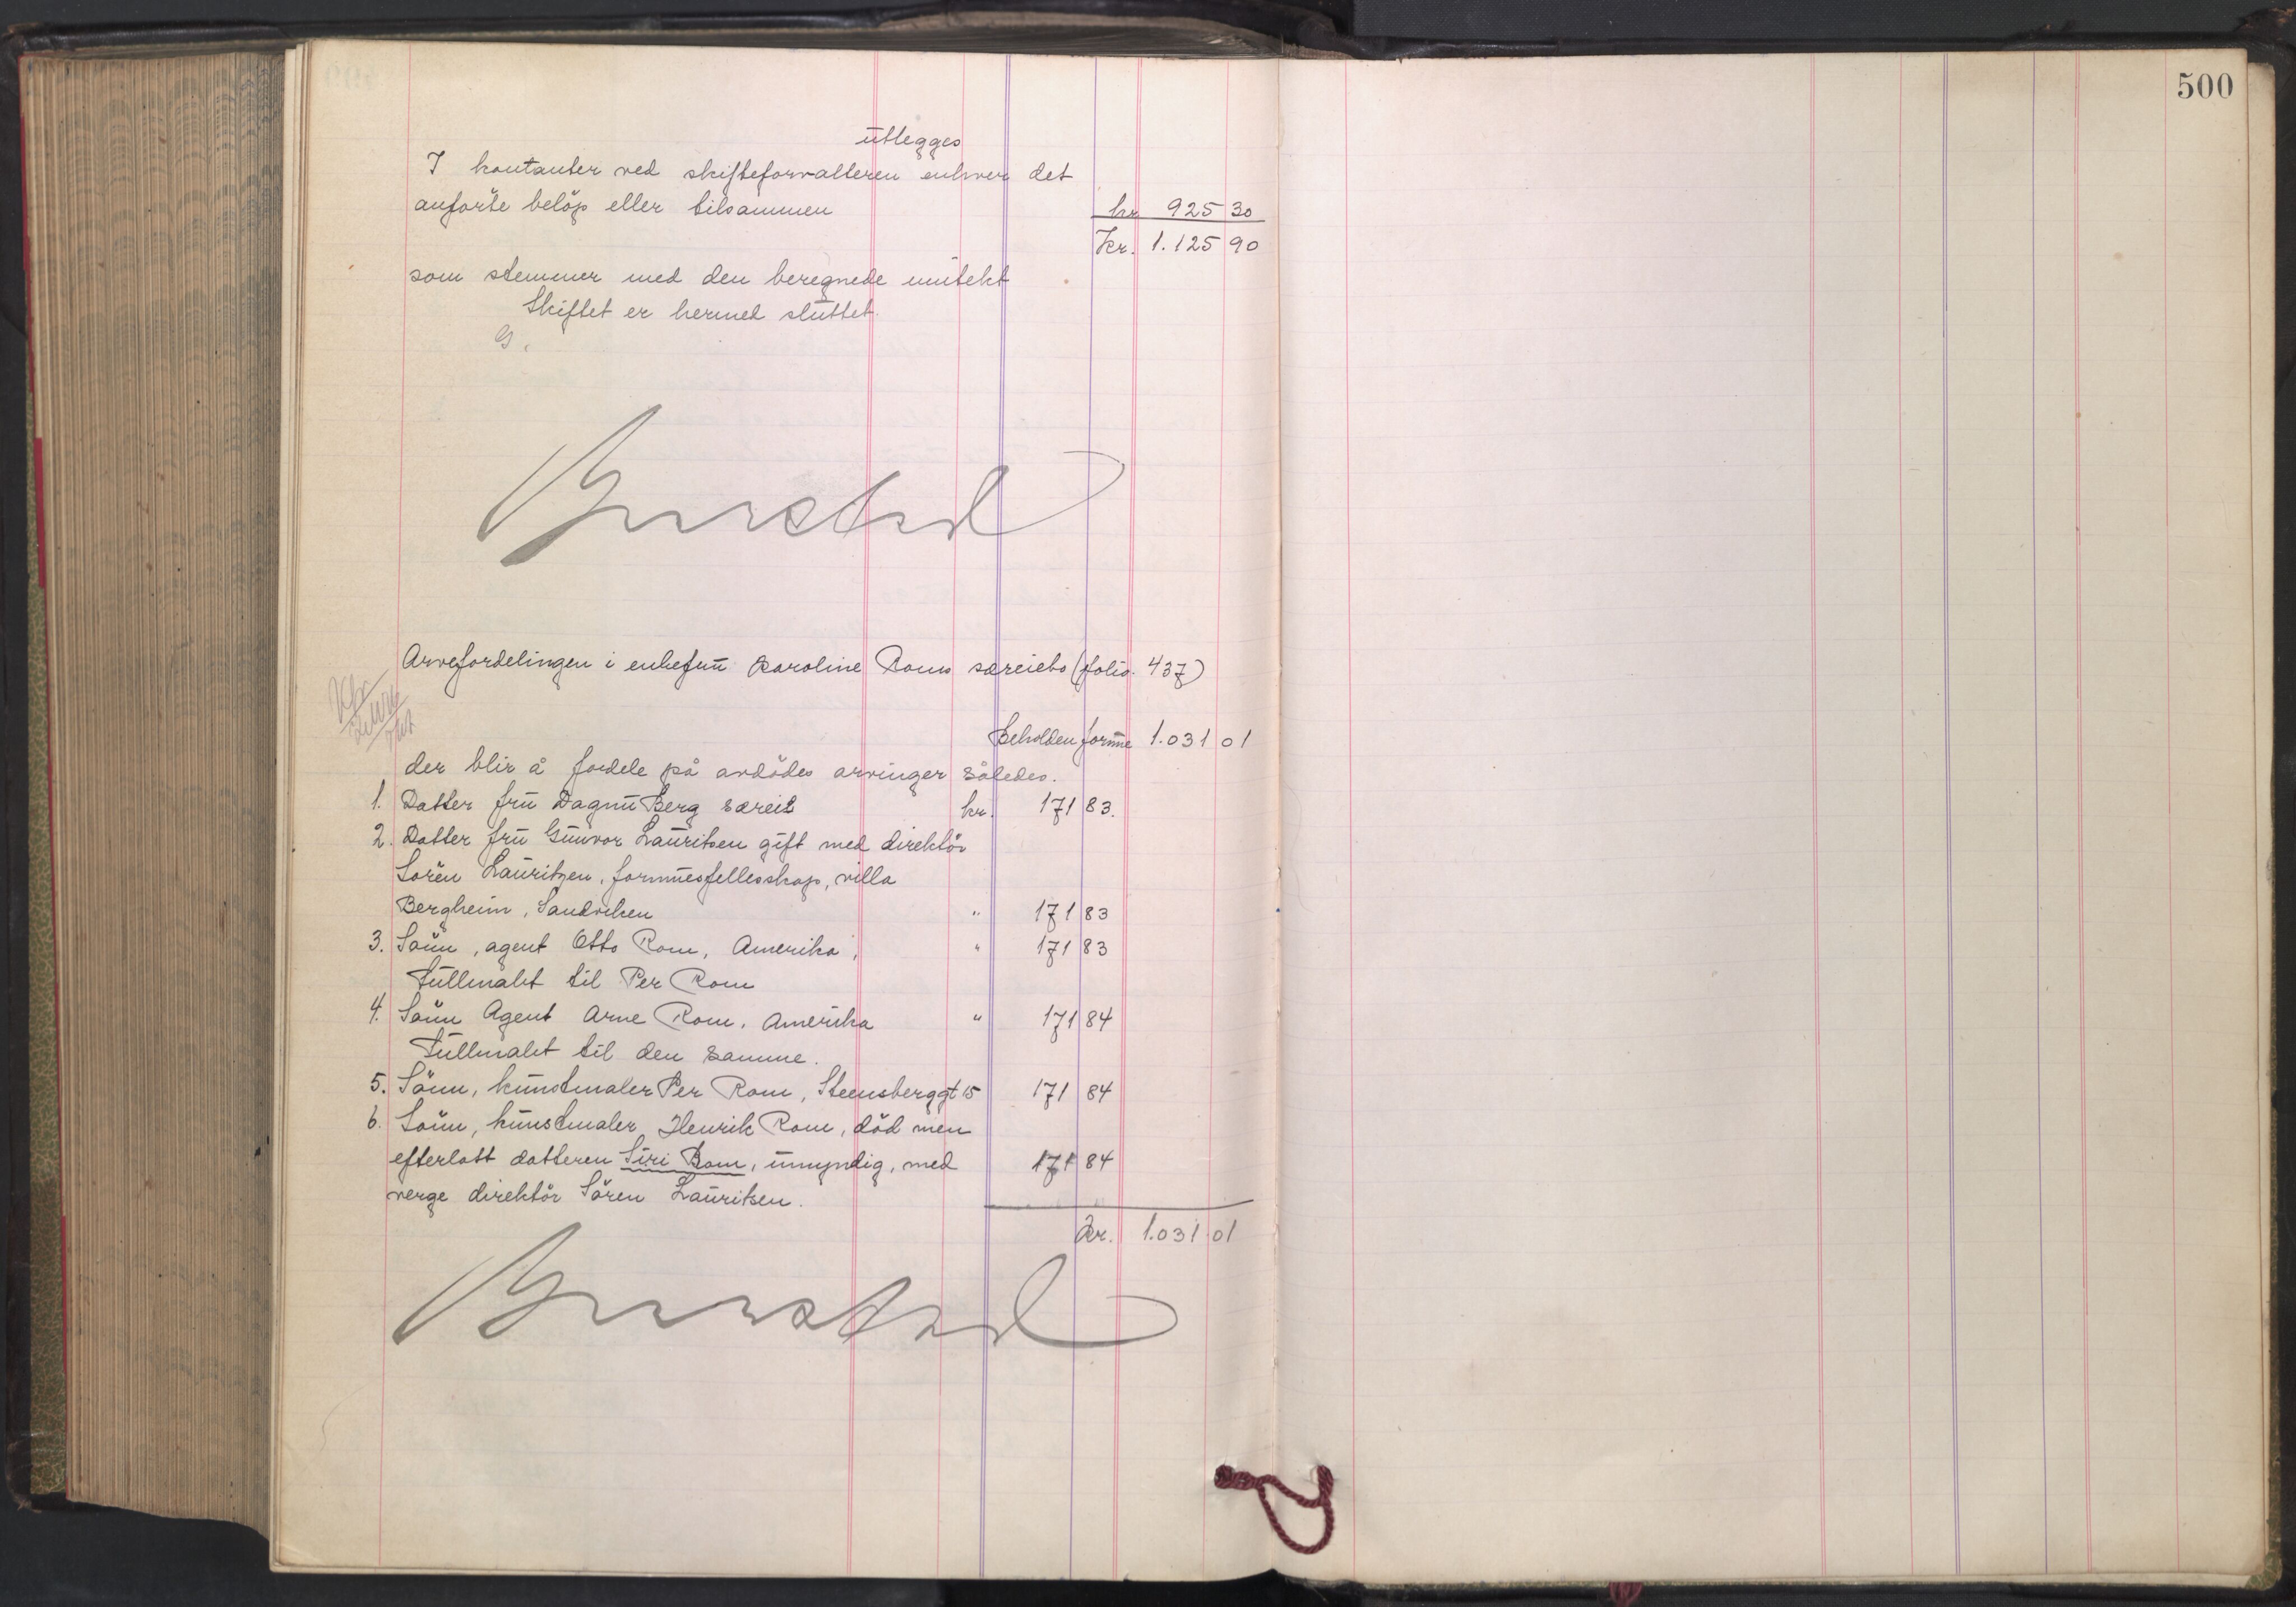 500
utlegges
I kontanter ved skifteforvalteren enhver det
anførte beløp eller tilsammen kr 925 30
Kr. 1.125 90
som stemmer med den beregnede inntekt
Skiftet er hermed sluttet.
G.
Arvefordelingen i enkefru Karoline Roms særeiebo (folio. 437)
Beholden formue 1.031 01
der blir å fordele på avdødes arvinger således.
1. Datter fru Dagny Berg særeie kr. 171 83.
2. Datter fru Gunvor Lauritsen gift med direktør
Søren Lauritzen, formuesfellesskap, villa
Bergheim, Sandviken " 171 83
3. Sønn, agent Otto Rom, Amerika, " 171 83
Fullmakt til Per Rom
4. Sønn Agent Arne Rom, Amerika " 171 84
Fullmakt til den samme.
5. Sønn, kunstmaler Per Rom, Steensberggt 15 171 84
6. Sønn, kunstmaler Henrik Rom, død men
efterlatt datteren Siri Rom, umyndig, med 171 84
verge direktør Søren Lauritsen.
Kr. 1.031 01